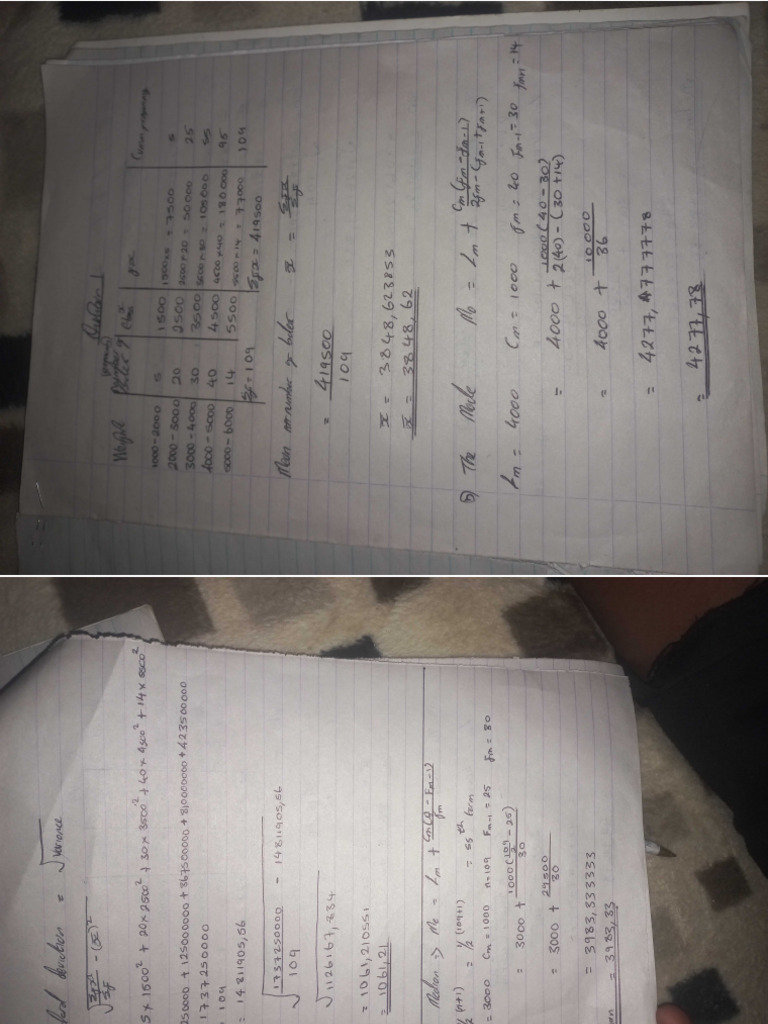 Question 1
Weight
fx
1000-2000 5 1500 1500×5 = 7500 5
2000-3000 20 2500 2500×20 = 50000 25
3000-4000 30 3500 3500×30 = 105000 55
4000-5000 40 4500 4500×40 = 180000 95
5000-6000 14 5500 5500×14 = 77000 109
Σf = 109 Σfx = 419500
Mean x̄ = Σfx/Σf
= 419500/109
x̄ = 3848,623853
x̄ = 3848,62
b) The Mode Mo = Lm + Cm(fm-fm-1)/2fm-(fm-1+fm+1)
Lm = 4000 Cm = 1000 fm = 40 fm-1 = 30 fm+1 = 14
= 4000 + 1000(40-30)/2(40)-(30+14)
= 4000 + 10000/36
= 4277,7777778
= 4277,78
deviation = √variance
√Σfx²/Σf - (x̄)²
5×1500² + 20×2500² + 30×3500² + 40×4500² + 14×5500²
250000 + 125000000 + 367500000 + 810000000 + 423500000
1737250000
109
= 14811905,56
√1737250000/109 - 14811905,56
√1126167,834
= 1061,210551
= 1061,21
Median => Me = Lm + Cm(n/2 - Fm-1)/fm
1/2(n+1) = 1/2(109+1) = 55th term
= 3000 Cm = 1000 n = 109 Fm-1 = 25 fm = 30
= 3000 + 1000(109/2 - 25)/30
= 3000 + 29500/30
= 3983,333333
= 3983,33